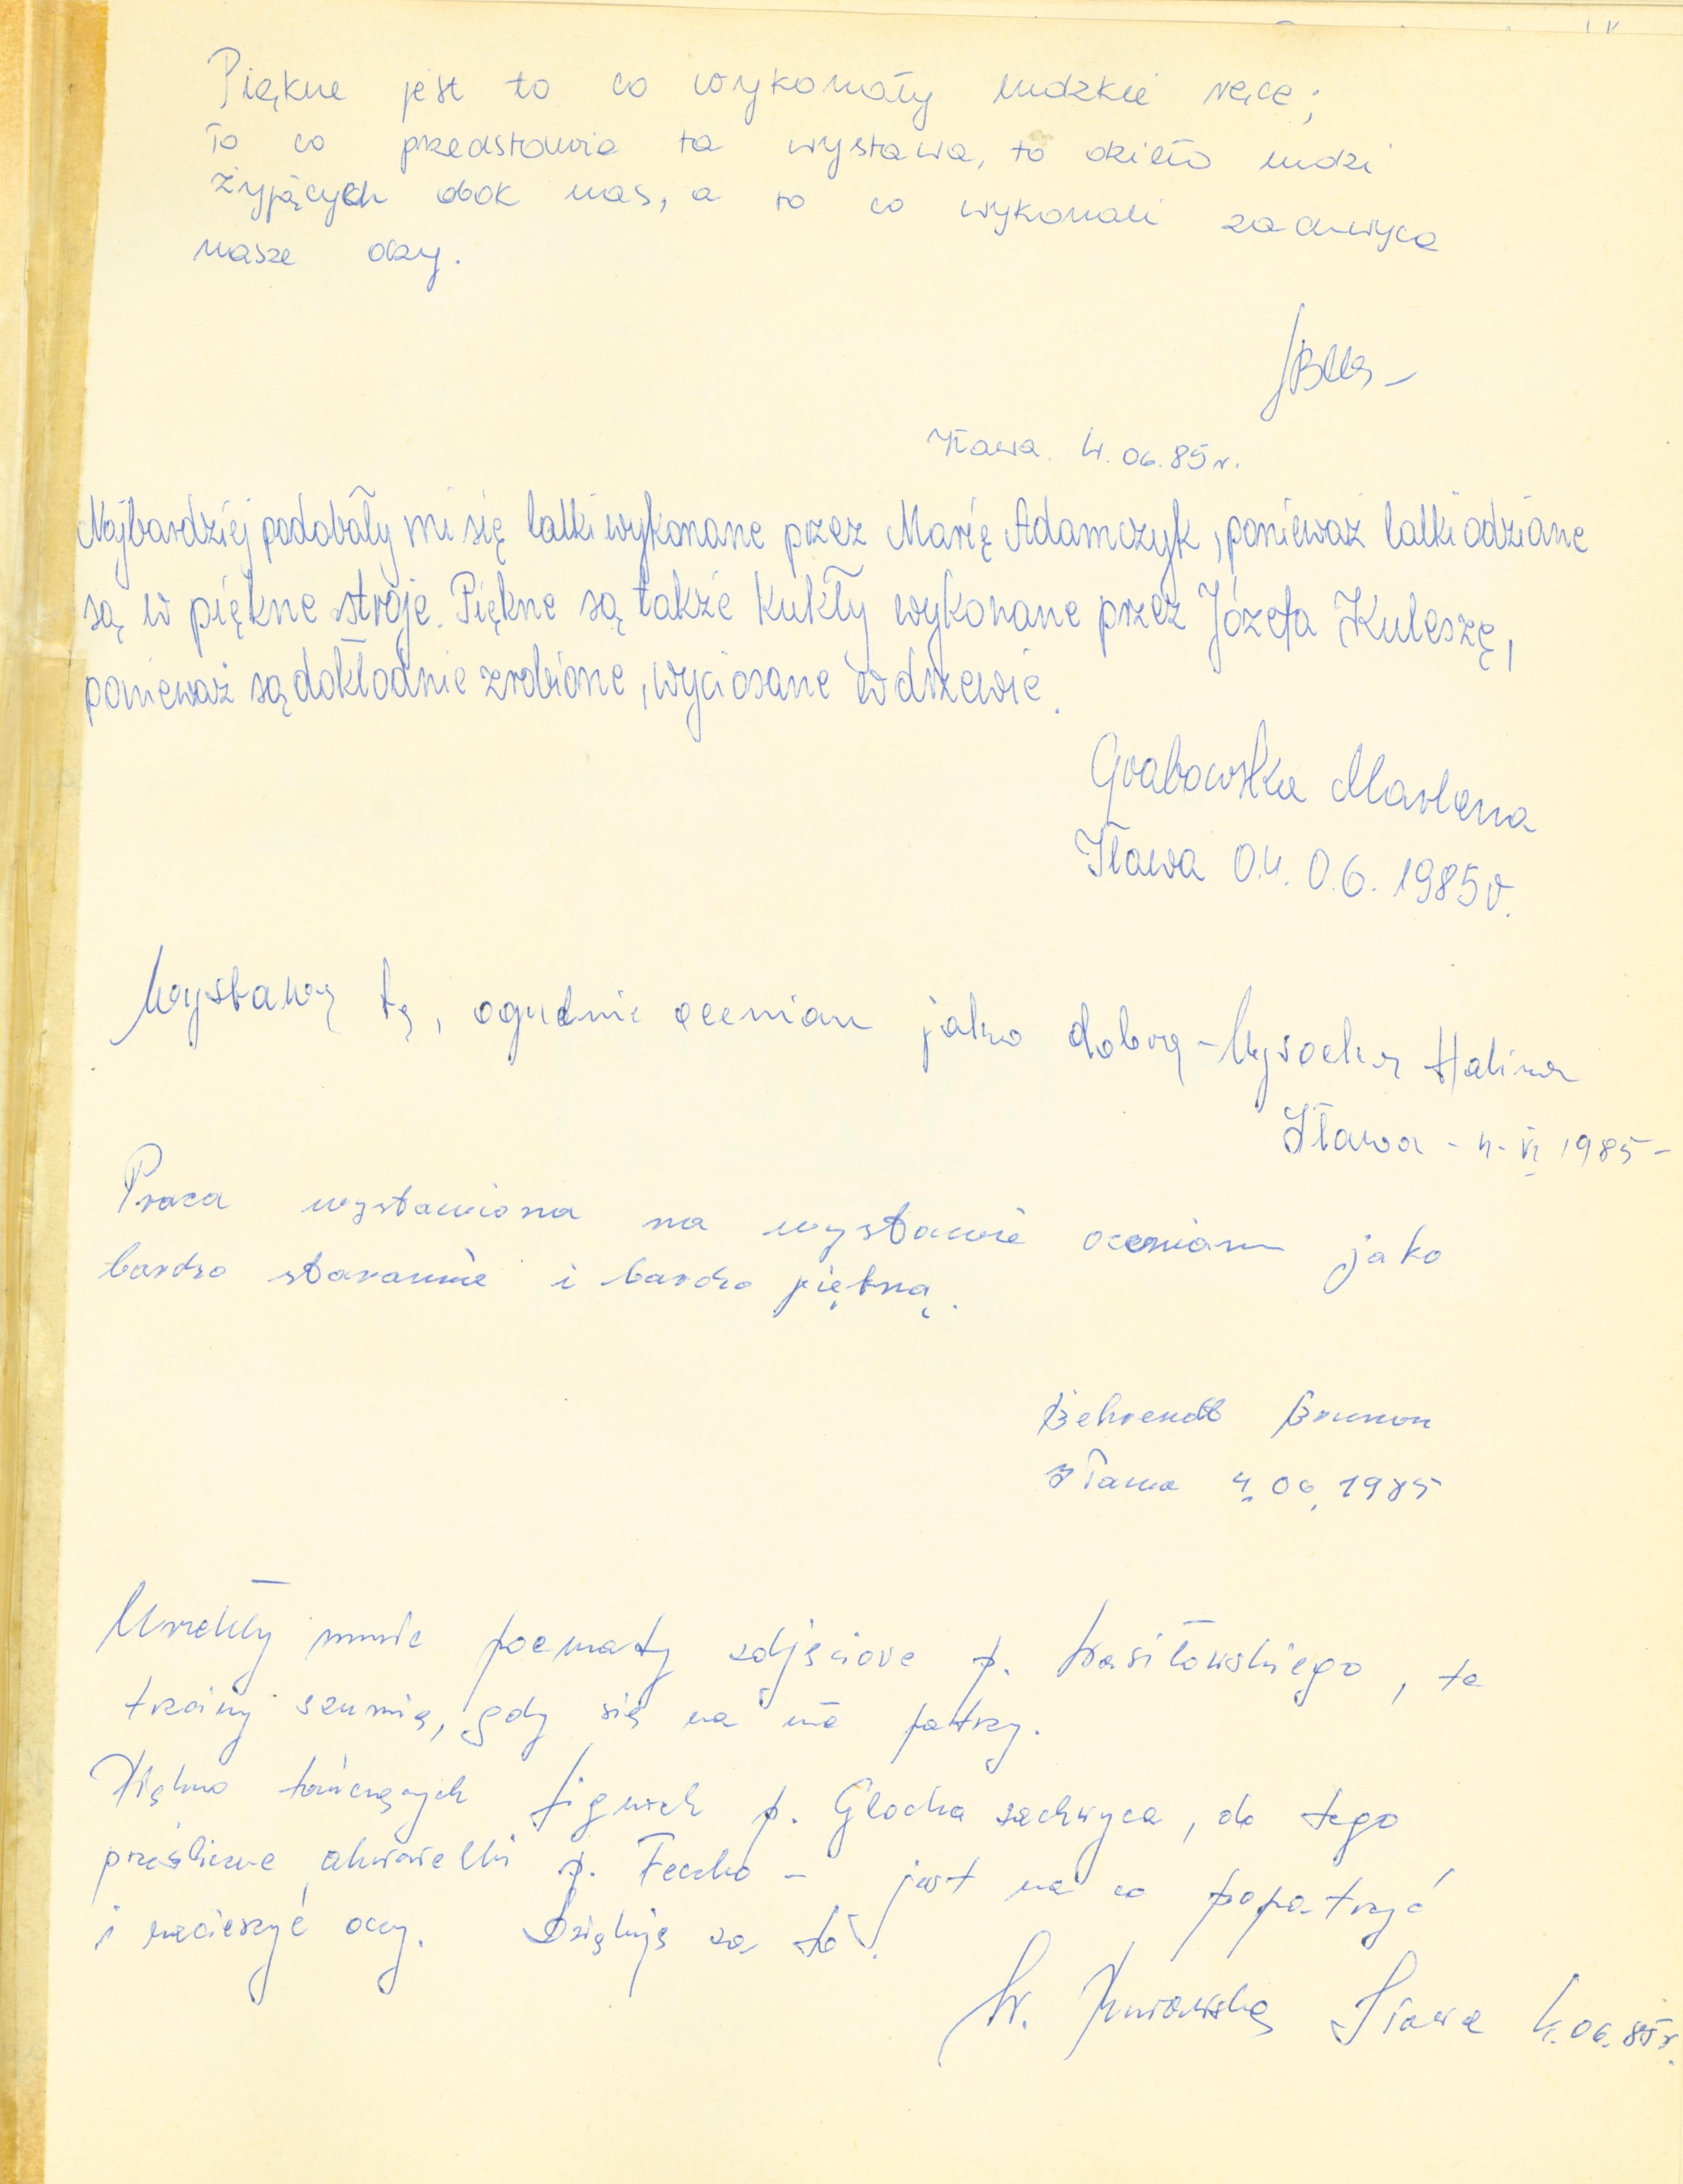 Piękne jest to co wykonały ludzkie ręce;
To co przedstawia ta wystawa, to dzieło ludzi
żyjących obok nas, a to co wykonali zachwyca
nasze oczy.
Iława. 4.06.85r.
Najbardziej podobały mi się lalki wykonane przez Marię Adamczyk, ponieważ lalki odziane
są w piękne stroje. Piękne są także kukły wykonane przez Józefa Kuleszę,
ponieważ są dokłodnie zrobione, wyciosane w drzewie.
Grabowska Marlena
Iława 04.0.6.1985r.
Wystawę tą, ogulnie oceniam jako dobrą - Wysocka Halina
Iława - 4-VI 1985-
Praca wystawiona na wystawie oceniam jako
bardzo starannie i bardzo piękną.
Behrendt Brunon
Iława 4.06.1985
Urzekły mnie poematy zdjęciowe p. Wasiłowskiego, te
trzciny szumią, gdy się na nie patrzy.
Piękno tańczących figurek p. Glocka zachwyca, do tego
prześliczne akwarelki p. Feczko - jest na co popatrzyć
i nacieszyć oczy. Dziękuję za to.
W. Iława 4.06.85r.